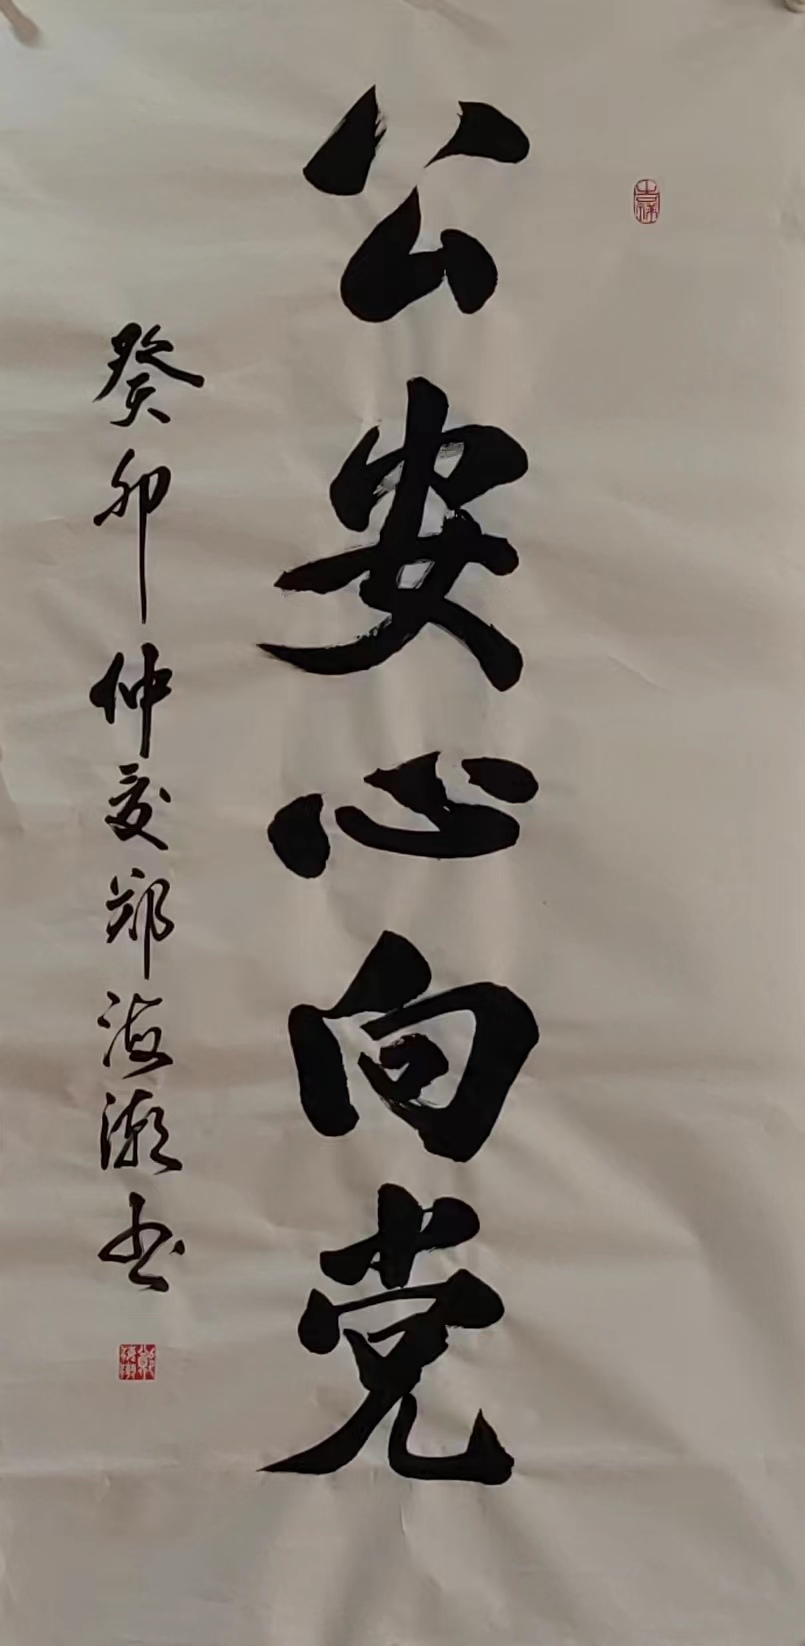 公安心向党
癸卯仲夏郑海潮书